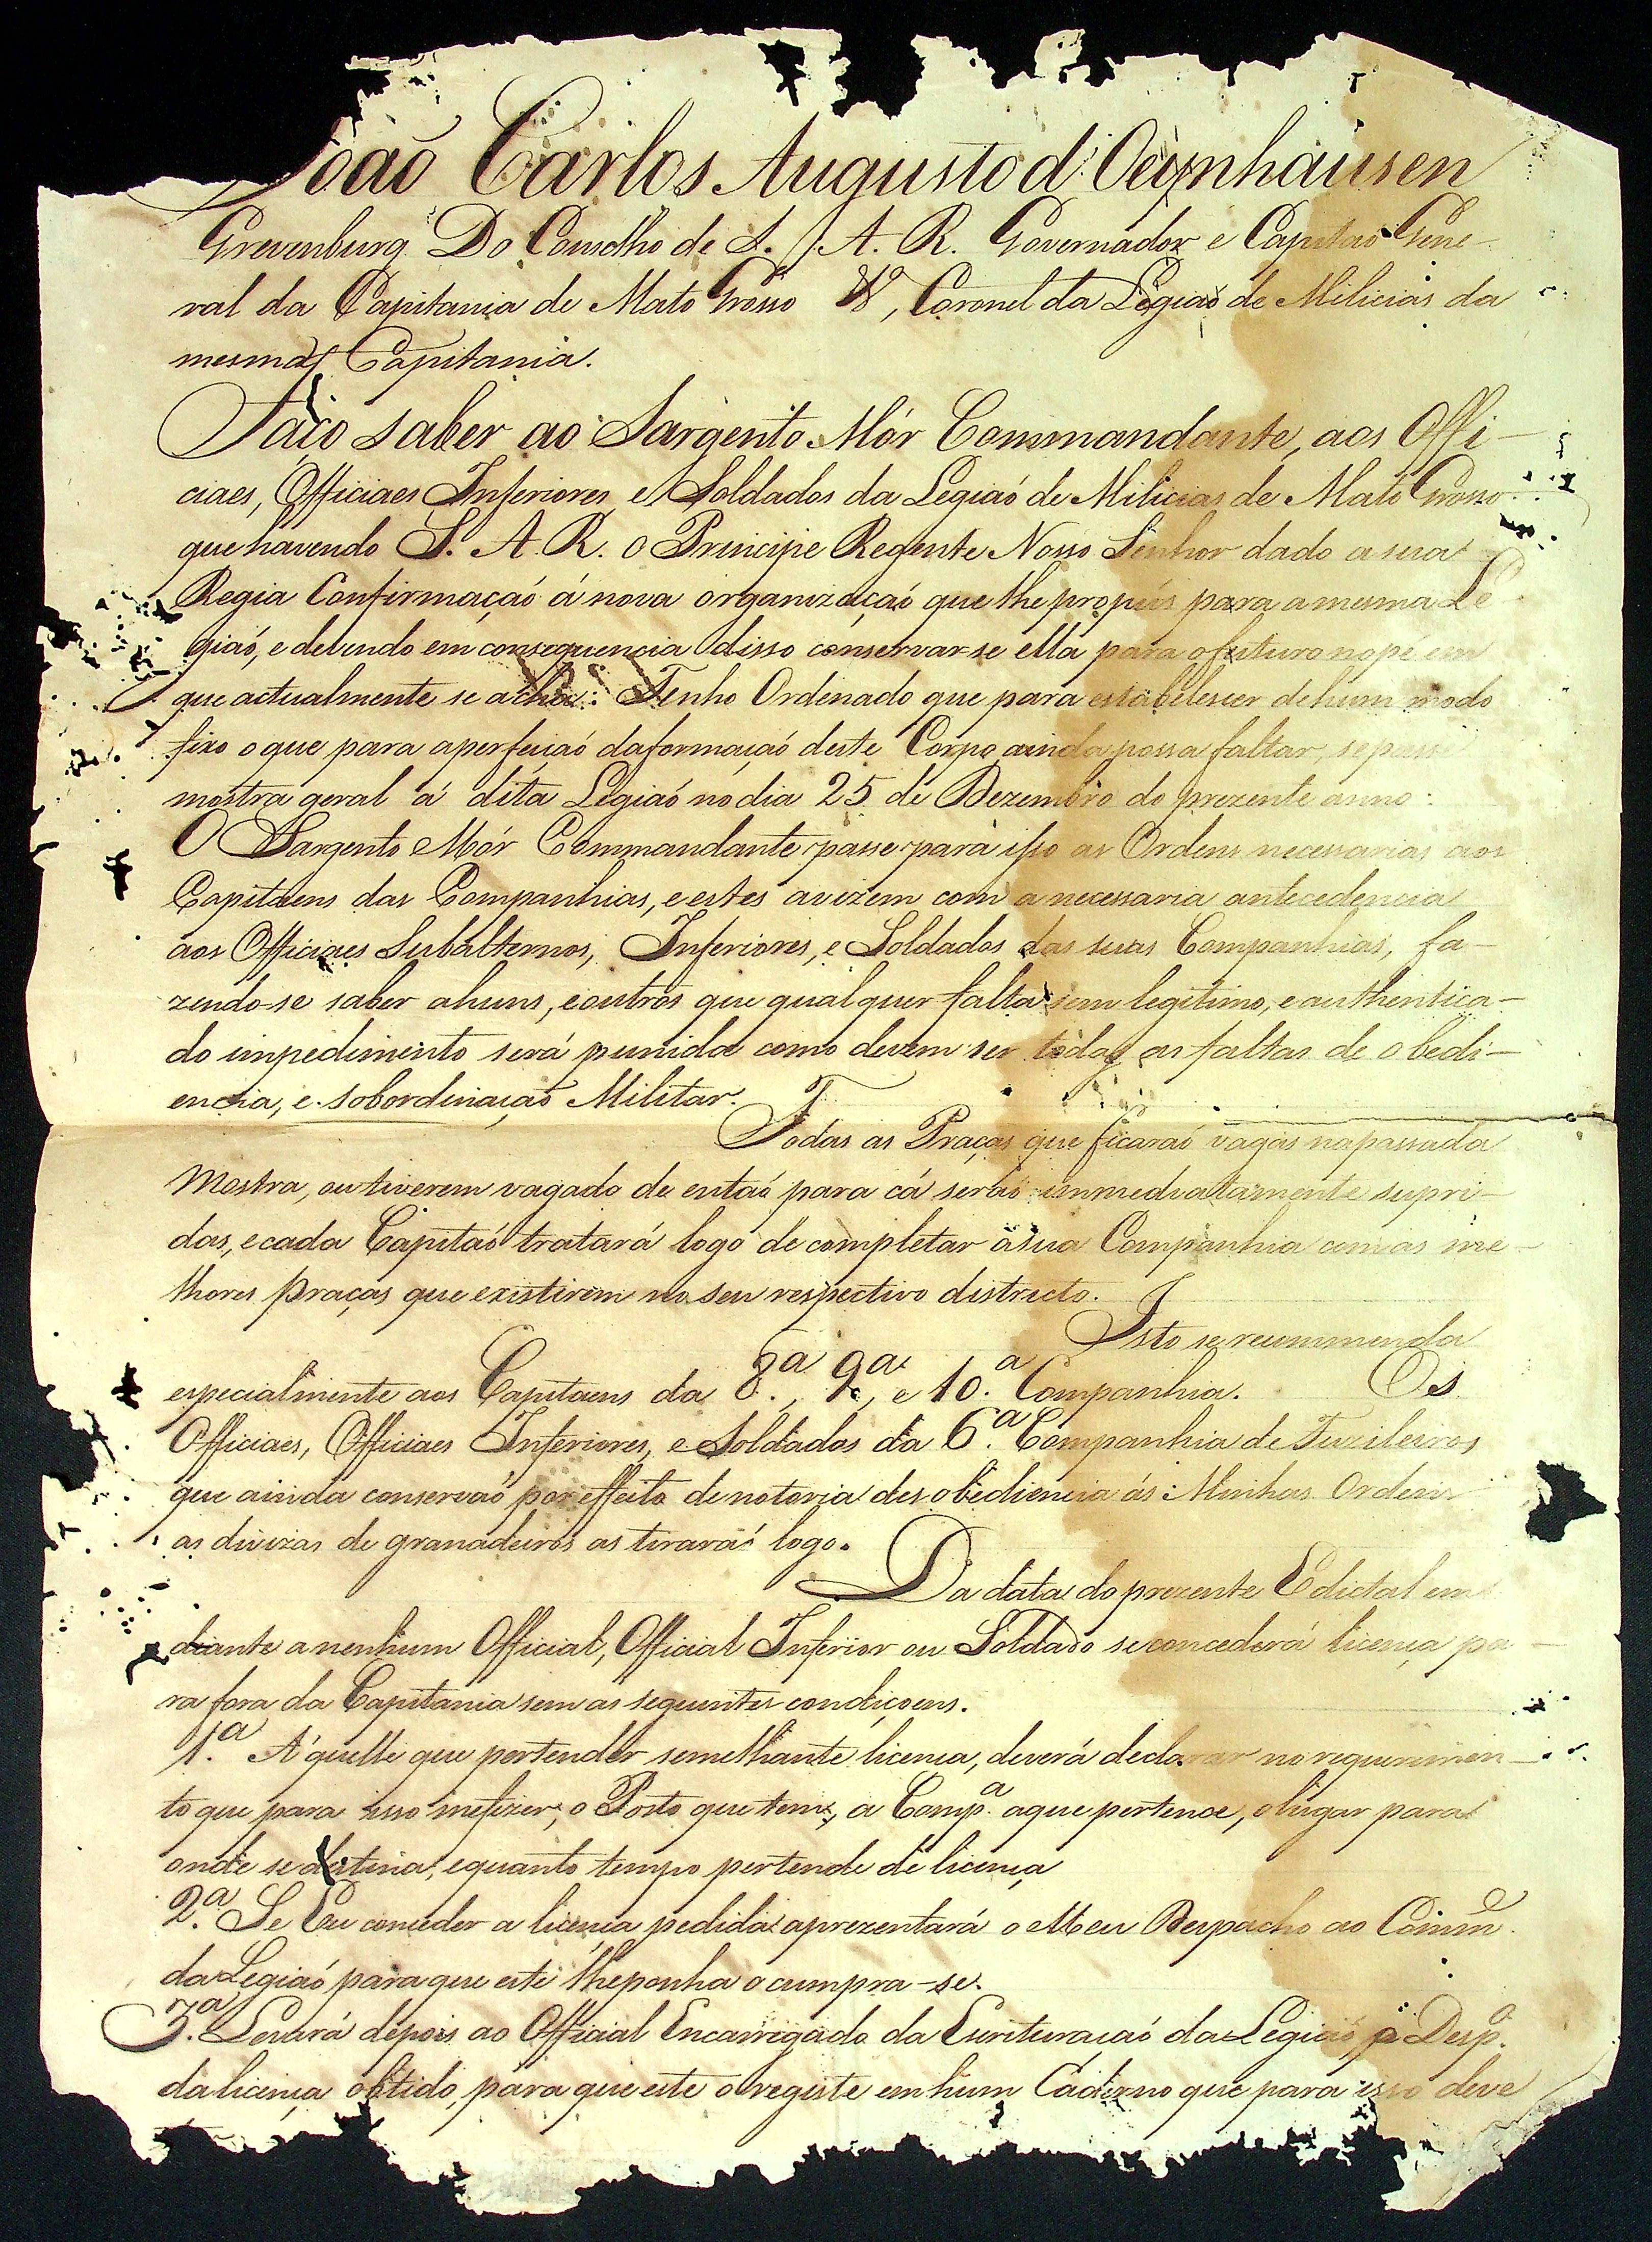 João Carlos Augusto d'Oeynhausen
Grevenburg Do Conselho de S. A. R. Governador e Capitaõ Gene-
ral da Capitania de Mato Grosso &ª, Coronel da Legiaõ de Milicias da
mesma Capitania.
Faço saber ao Sargento Mór Commandante, aos Offi-
ciaes, Officiaes Inferiores, e Soldados da Legiaõ de Milicias de Mato Grosso
que havendo S. A. R. o Principe Regente Nosso Senhor dado a sua
Regia Confirmaçaõ á nova organizaçaõ que lhe propús para a mesma Le-
giaõ, e devendo em consequencia disso conservar-se ella para o futuro no pé em
que actualmente se acha: Tenho Ordenado que para estabelescer de hum modo
fixo o que para a perfeiçaõ da formaçaõ deste Corpo ainda possa faltar, se passe
mostra geral á dita Legiaõ no dia 25 de Dezembro do prezente anno:
O Sargento Mór Commandante passe para isso as Ordens necessarias aos
Capitaens das Companhias, e estes avizem com a necessaria antecedencia
aos Officiaes Subalternos, Inferiores, e Soldados das suas Companhias, fa-
zendo-se saber a huns, e outros que qualquer falta sem legitimo, e authentica-
do impedimento será punida como devem ser todas as faltas de obedi-
encia, e sobordinaçaõ Militar.
Todas as Praças que ficaraõ vagas na passada
Mostra, ou tiverem vagado de entaõ para cá seraõ immediatamente supri-
das, e cada Capitaõ tratará logo de completar a sua Companhia com as me-
lhores praças que existirem no seu respectivo districto.
Isto se recommenda
especialmente aos Capitaens da 8.ª, 9.ª, e 10.ª Companhia. Os
Officiaes, Officiaes Inferiores, e Soldados da 6.ª Companhia de Fuzileiros
que ainda conservaõ por effeito de notoria desobediencia ás Minhas Ordens
as divizas de granadeiros as tiraraõ logo.
Da data do prezente Edictal em
diante a nenhum Official, Official Inferior ou Soldado se concederá licença pa-
ra fora da Capitania sem as seguintes condiçoens.
1.ª A'quelle que pertender semelhante licença, deverá declarar no requerimen-
to que para isso me fizer, o Posto que tem, a Comp.ª a que pertence, o lugar para
onde se destina, e quanto tempo pertende de licença
2.ª Se Eu conceder a licença pedida aprezentará o Meu Despacho ao Comm.e
da Legiaõ para que este lhe ponha o cumpra-se.
3.ª Levará depois ao Official Encarregado da Escrituraçaõ da Legiaõ, o Desp.o
da licença obtido, para que este o registe em hum Caderno que para isso deve